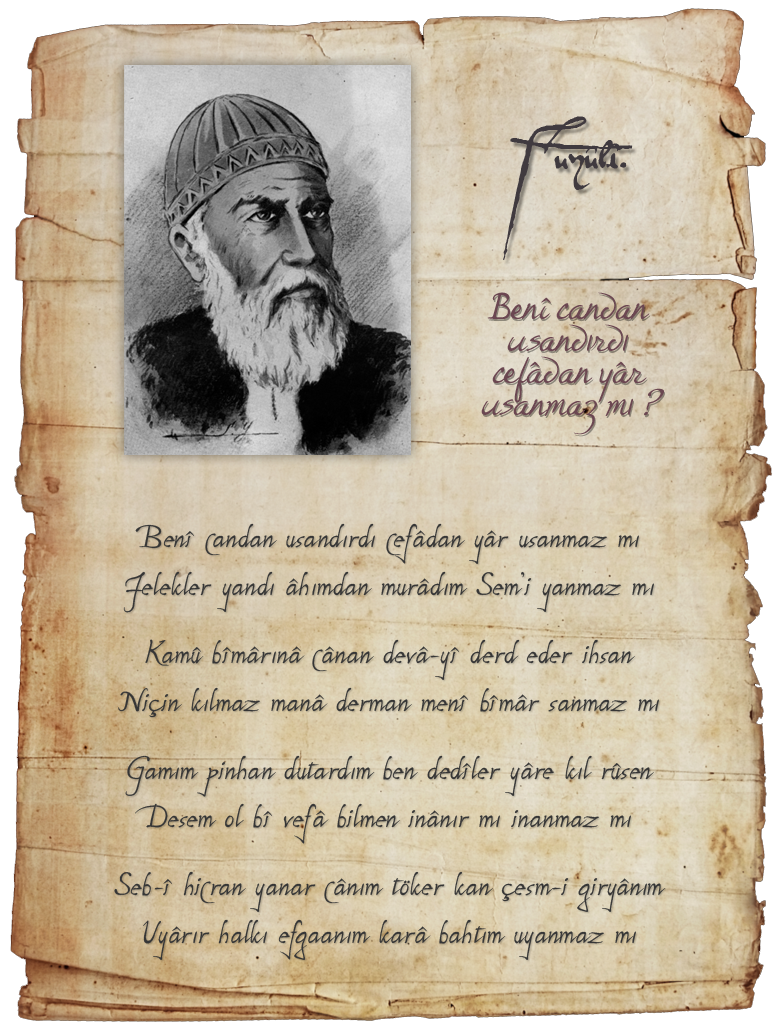 Fuzûlî.
Benî candan
usandırdı
cefâdan yâr
usanmaz mı ?
Benî candan usandırdı cefâdan yâr usanmaz mı
Felekler yandı âhımdan murâdım Sem'i yanmaz mı
Kamû bîmârınâ cânan devâ-yî derd eder ihsan
Niçin kılmaz manâ derman menî bîmâr sanmaz mı
Gamım pinhan dutardım ben dedîler yâre kıl rûsen
Desem ol bî vefâ bilmen inânır mı inanmaz mı
Seb-î hicran yanar cânım töker kan çesm-i giryânım
Uyârır halkı efgaanım karâ bahtım uyanmaz mı